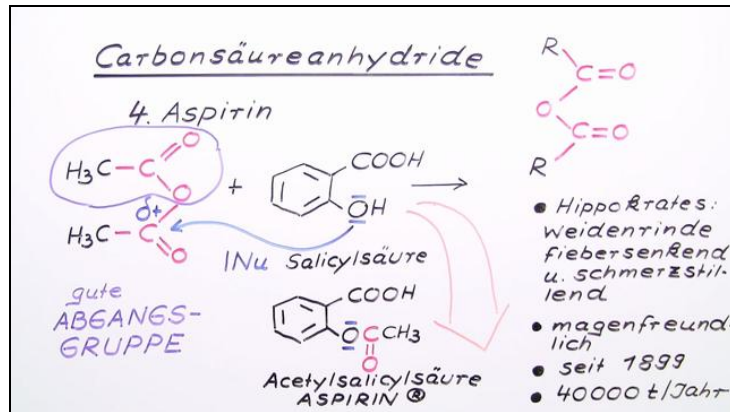 Carbonsäureanhydride
4. Aspirin
H₃C–C=O
O
δ+
H₃C–C=O
+
COOH
OH
INu Salicylsäure
gute
ABGANGS-
GRUPPE
COOH
OCCH₃
O
Acetylsalicylsäure
ASPIRIN ®
R
C=O
O
C=O
R
• Hippokrates:
weidenrinde
fiebersenkend
u. schmerzstil-
lend
• magenfreund-
lich
• seit 1899
• 40000 t/Jahr